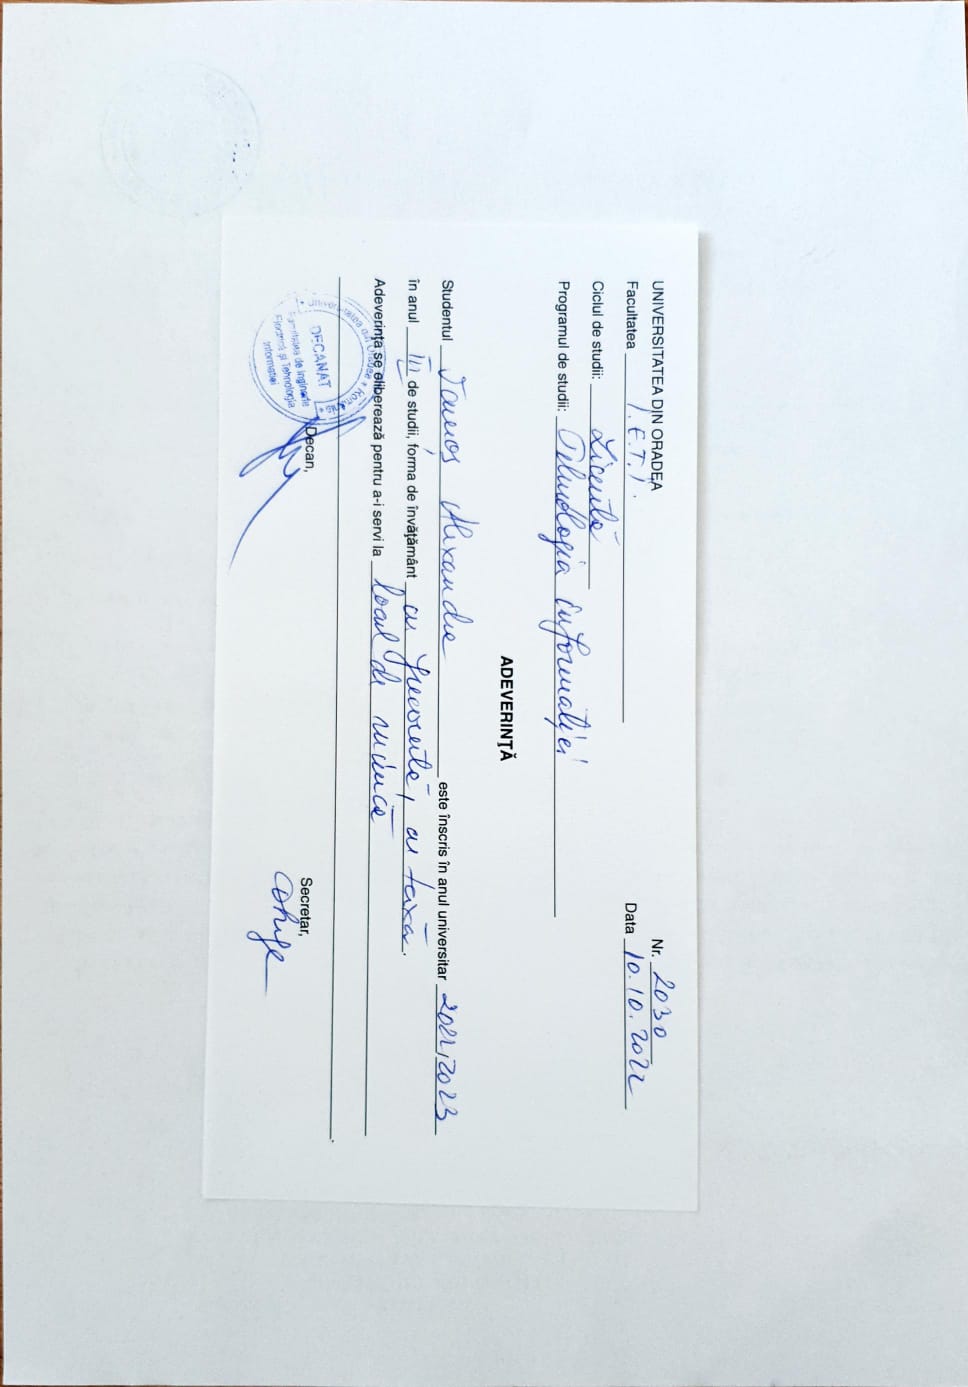 UNIVERSITATEA DIN ORADEA Nr. 2030
Facultatea I.E.T.I. Data 10.10.2022
Ciclul de studii: Licență
Programul de studii: Tehnologia informației
ADEVERINȚĂ
Studentul Alexandra este înscris în anul universitar 2022/2023
în anul III de studii, forma de învăţământ cu frecvență, cu taxă.
Adeverinţa se eliberează pentru a-i servi la locul de muncă
Decan, Secretar,
Universitatea din Oradea
DECANAT
Facultatea de Inginerie
Electrică și Tehnologia
Informației